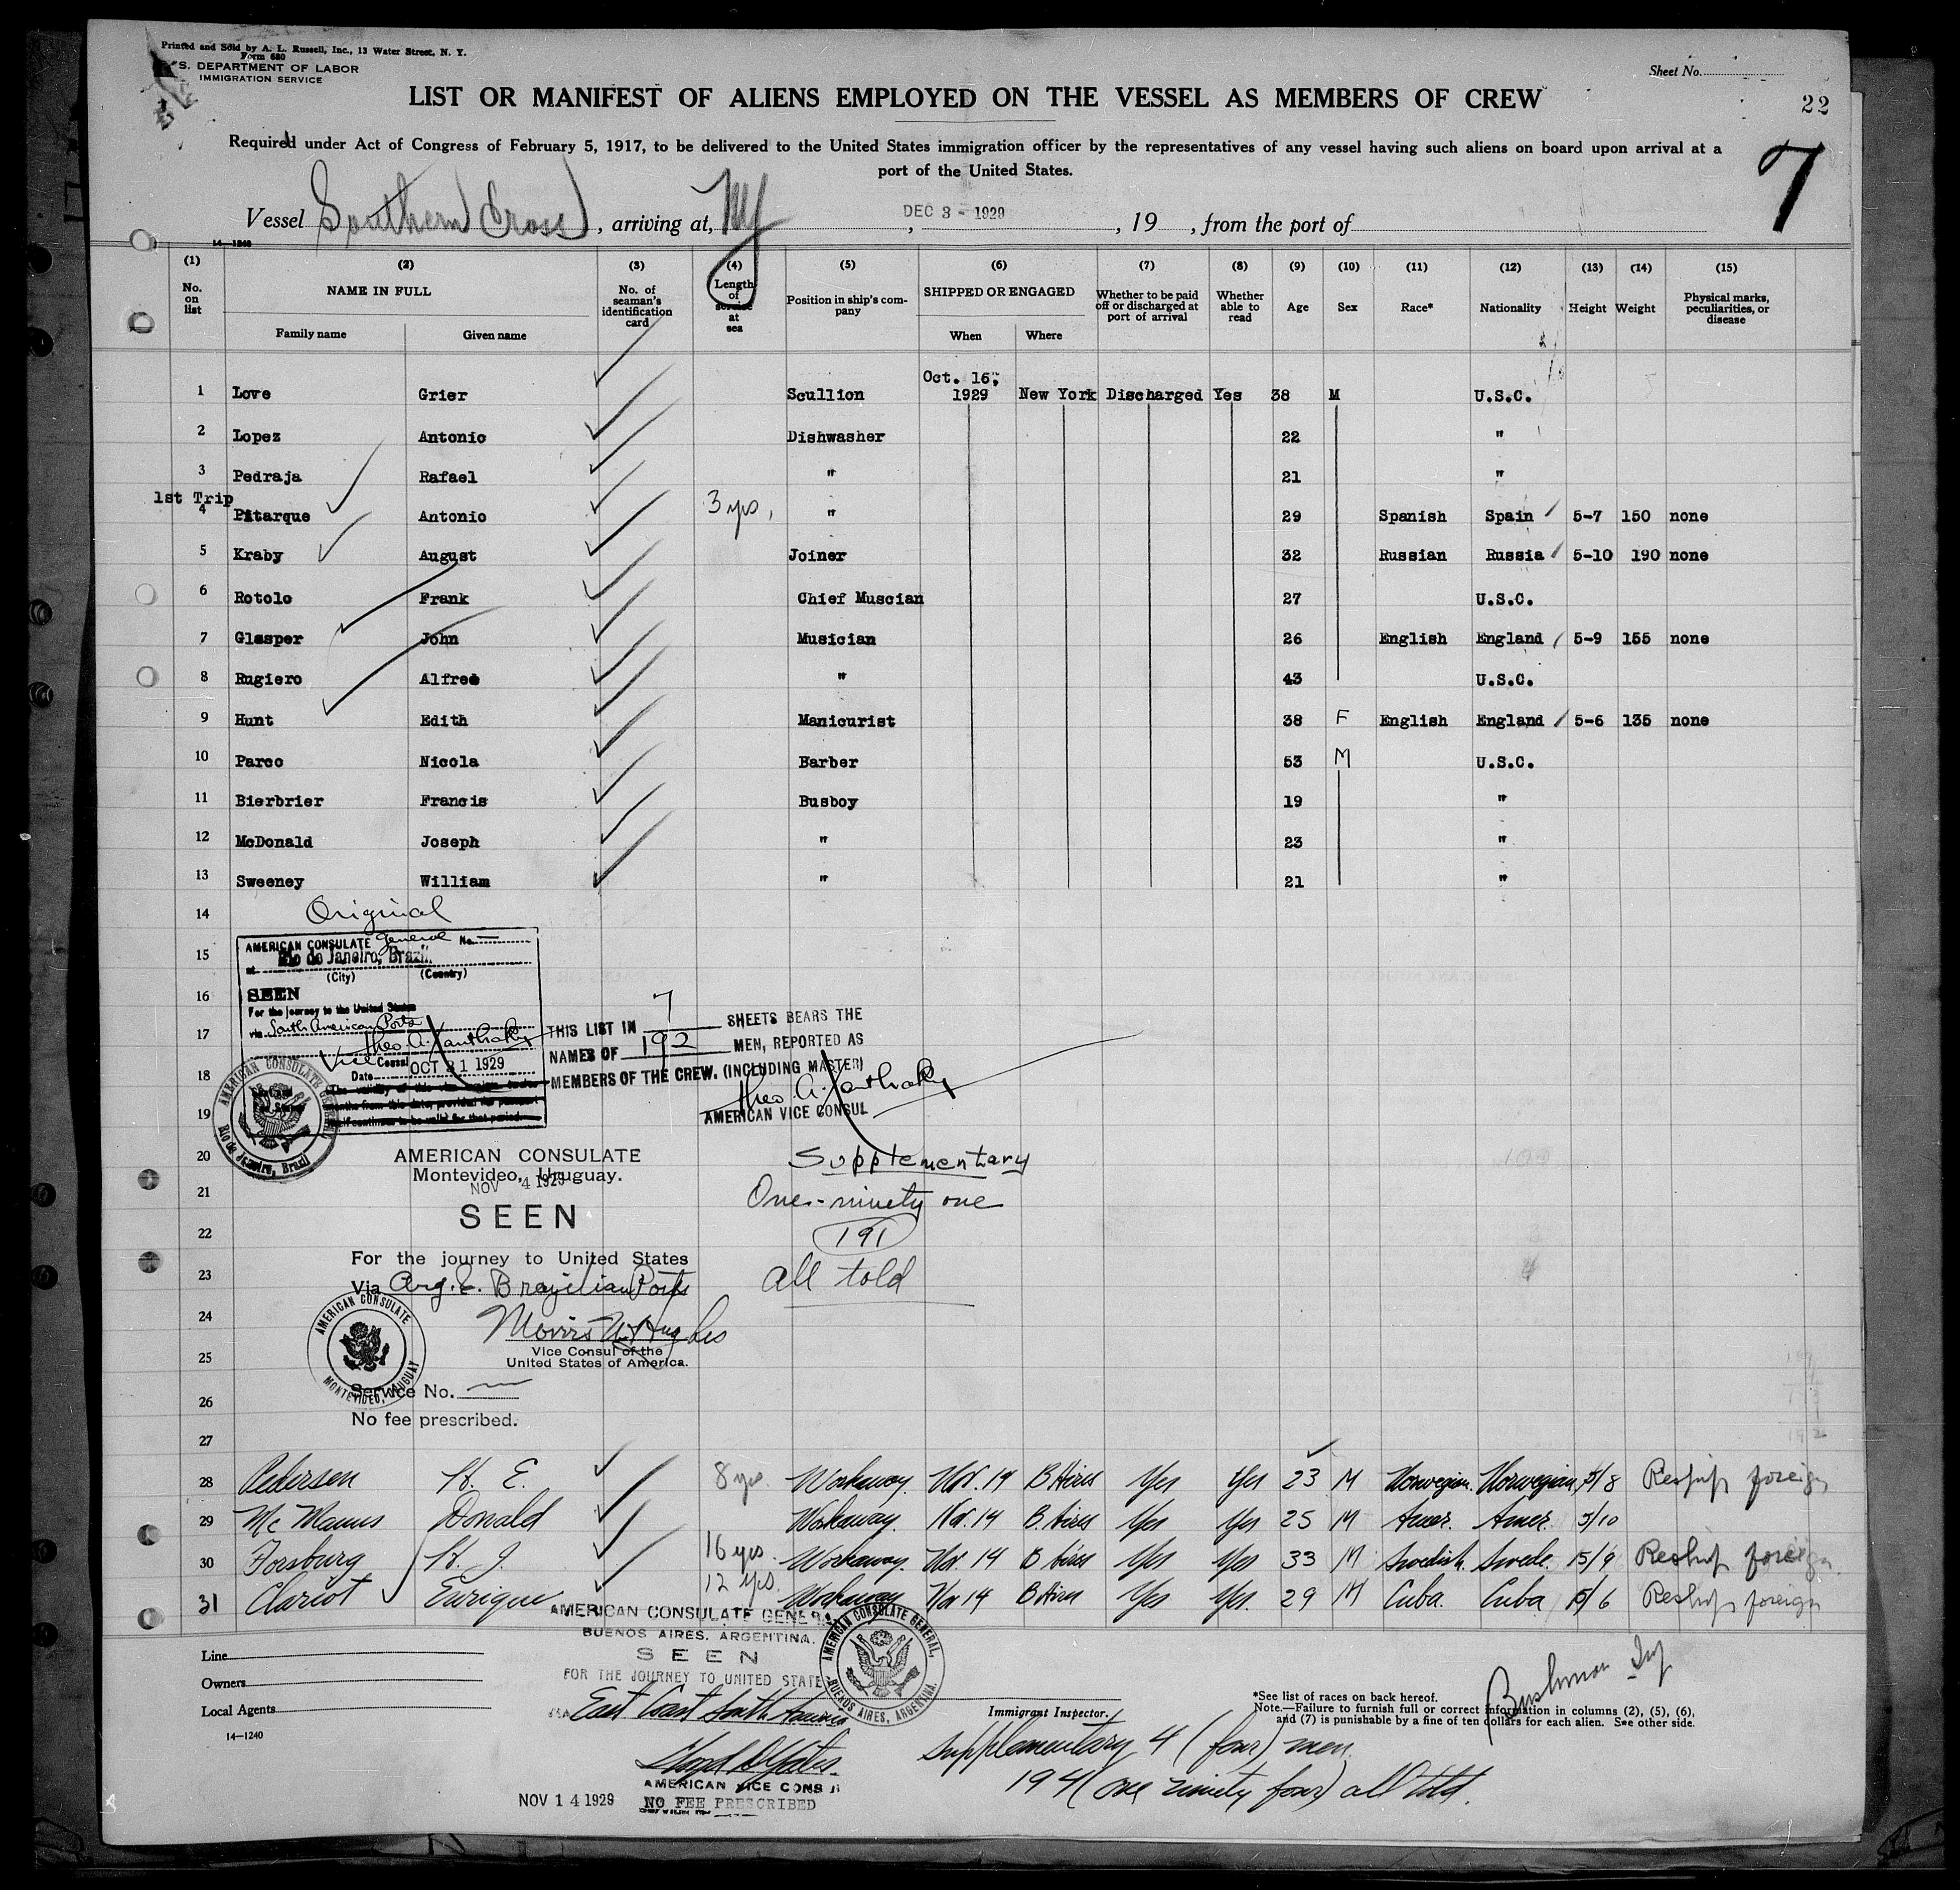 Printed and Sold by A. L. Russell, Inc., 13 Water Street, N. Y.
Form 680
S. DEPARTMENT OF LABOR
IMMIGRATION SERVICE
Sheet No.
LIST OR MANIFEST OF ALIENS EMPLOYED ON THE VESSEL AS MEMBERS OF CREW
22
7
Required under Act of Congress of February 5, 1917, to be delivered to the United States immigration officer by the representatives of any vessel having such aliens on board upon arrival at a
port of the United States.
Vessel Southern Cross, arriving at, NY, DEC 3 - 1929, 19 , from the port of
14-1240
(1) (2) (3) (4) (5) (6) (7) (8) (9) (10) (11) (12) (13) (14) (15)
No. on list
NAME IN FULL
Family name Given name
No. of seaman's identification card
Length of service at sea
Position in ship's company
SHIPPED OR ENGAGED
When Where
Whether to be paid off or discharged at port of arrival
Whether able to read
Age Sex Race* Nationality Height Weight
Physical marks, peculiarities, or disease
1 Love Grier Scullion Oct. 16, 1929 New York Discharged Yes 38 M U.S.C.
2 Lopez Antonio Dishwasher 22 "
3 Pedraja Rafael " 21 "
1st Trip
4 Pitarque Antonio 3 yrs, " 29 Spanish Spain 5-7 150 none
5 Kraby August Joiner 32 Russian Russia 5-10 190 none
6 Rotolo Frank Chief Muscian 27 U.S.C.
7 Glasper John Musician 26 English England 5-9 155 none
8 Rugiero Alfred " 43 U.S.C.
9 Hunt Edith Manicurist 38 F English England 5-6 135 none
10 Parco Nicola Barber 53 M U.S.C.
11 Bierbrier Francis Busboy 19 "
12 McDonald Joseph " 23 "
13 Sweeney William " 21 "
14
Original
15
AMERICAN CONSULATE General No.
at Rio de Janeiro, Brazil
(City) (Country)
16
SEEN
For the journey to the United States
via South American Ports
17
Theo. A. Xanthaky
Vice Consul
Date OCT 31 1929
18
The validity of this visa expires twelve
months from this date, provided the passport
itself continues to be valid for that period.
19
AMERICAN CONSULATE GENERAL
Rio de Janeiro, Brazil
THIS LIST IN 7 SHEETS BEARS THE
NAMES OF 192 MEN, REPORTED AS
MEMBERS OF THE CREW. (INCLUDING MASTER)
Theo. A. Xanthaky
AMERICAN VICE CONSUL
20
AMERICAN CONSULATE
Montevideo, Uruguay.
NOV 4 1929
21
SEEN
22
For the journey to United States
23
Via Arg. & Brazilian Ports
24
Morris N. Hughes
25
Vice Consul of the
United States of America.
AMERICAN CONSULATE
MONTEVIDEO, URUGUAY
26
Service No.
No fee prescribed.
27
Supplementary
One-ninety one
191
all told
28 Pedersen H. E. 8 yrs. Workaway. Nov. 14 B Aires Yes Yes 23 M Norwegian. Norwegian 5/8 Reship foreign
29 Mc Manus Donald Workaway. Nov. 14 B. Aires Yes Yes 25 M Amer. Amer. 5/10
30 Forsburg H. J. 16 yrs. Workaway. Nov. 14 B Aires Yes Yes 33 M Swedish. Swede. 5/9 Reship foreign
31 Clariot Enrique 12 yrs. Workaway Nov 14 B Aires Yes Yes. 29 M Cuba. Cuba 5/6 Reship foreign
Line
Owners
Local Agents
14—1240
AMERICAN CONSULATE GENERAL
BUENOS AIRES, ARGENTINA.
SEEN
FOR THE JOURNEY TO UNITED STATE
VIA East Coast South America
AMERICAN VICE CONSUL
NOV 14 1929
NO FEE PRESCRIBED
AMERICAN CONSULATE GENERAL,
BUENOS AIRES, ARGENTINA.
Immigrant Inspector.
*See list of races on back hereof.
Note.—Failure to furnish full or correct information in columns (2), (5), (6),
and (7) is punishable by a fine of ten dollars for each alien. See other side.
Supplementary 4 (four) men
194 (one ninety four) all told.